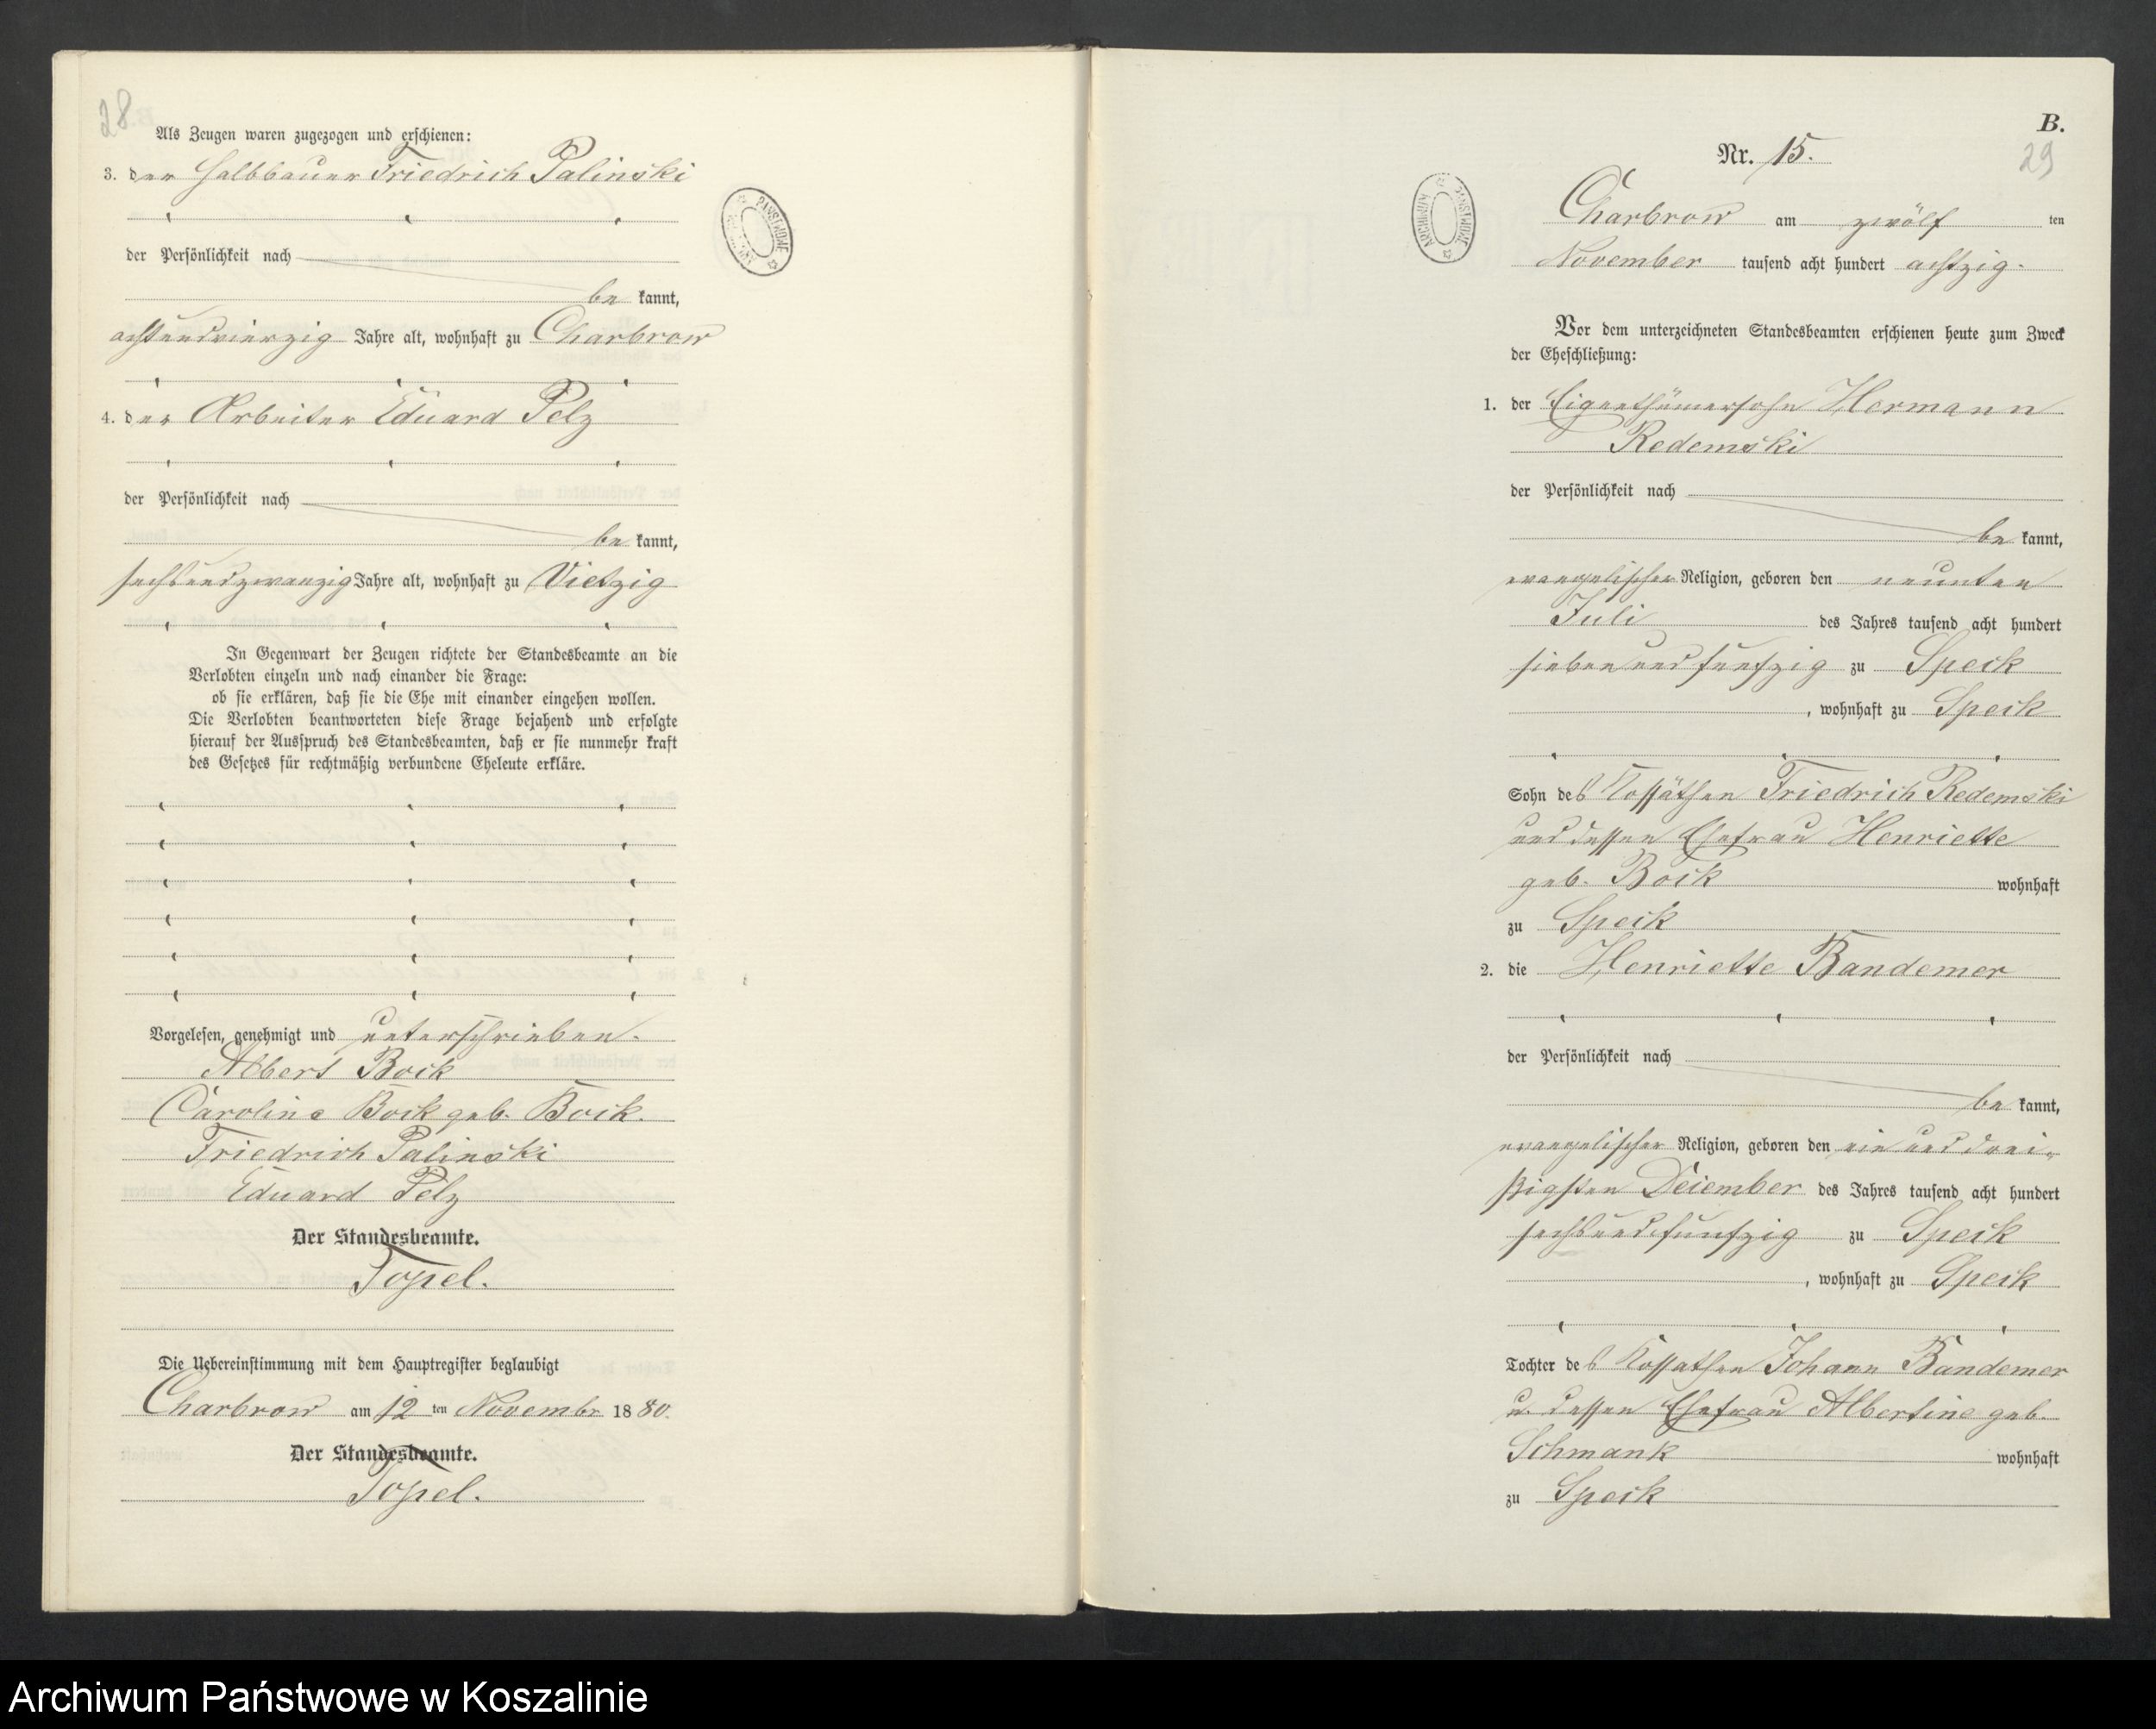 28
Als Zeugen waren zugezogen und erschienen:
3. der Halbbauer Friedrich Palinski
der Persönlichkeit nach
be kannt,
achtundvierzig Jahre alt, wohnhaft zu Charbrow
4. der Arbeiter Eduard Pelz
der Persönlichkeit nach
be kannt,
sechsundzwanzig Jahre alt, wohnhaft zu Vietzig
In Gegenwart der Zeugen richtete der Standesbeamte an die
Verlobten einzeln und nach einander die Frage:
ob sie erklären, daß sie die Ehe mit einander eingehen wollen.
Die Verlobten beantworteten diese Frage bejahend und erfolgte
hierauf der Ausspruch des Standesbeamten, daß er sie nunmehr kraft
des Gesetzes für rechtmäßig verbundene Eheleute erkläre.
Vorgelesen, genehmigt und unterschrieben.
Albert Bock
Caroline Bock geb. Bock.
Friedrich Palinski
Eduard Pelz
Der Standesbeamte.
Topel.
Die Uebereinstimmung mit dem Hauptregister beglaubigt
Charbrow am 12 ten Novembr 18 80.
Der Standesbeamte.
Topel.
ARCHIWUM PAŃSTWOWE
B.
29
Nr. 15.
ARCHIWUM PAŃSTWOWE
Charbrow am zwölf ten
November tausend acht hundert achtzig.
Vor dem unterzeichneten Standesbeamten erschienen heute zum Zweck
der Eheschließung:
1. der Eigenthümersohn Hermann
Redemski
der Persönlichkeit nach
be kannt,
evangelischer Religion, geboren den neunten
Juli des Jahres tausend acht hundert
sieben und funfzig zu Speck
, wohnhaft zu Speck
Sohn des Kossäthen Friedrich Redemski
und dessen Ehefrau Henriette
geb. Bock wohnhaft
zu Speck
2. die Henriette Bandemer
der Persönlichkeit nach
be kannt,
evangelischer Religion, geboren den ein und drei-
ßigsten December des Jahres tausend acht hundert
sechsundfunfzig zu Speck
, wohnhaft zu Speck
Tochter des Kossathen Johann Bandemer
u. dessen Ehefrau Albertine geb.
Schmank wohnhaft
zu Speck
Archiwum Państwowe w Koszalinie